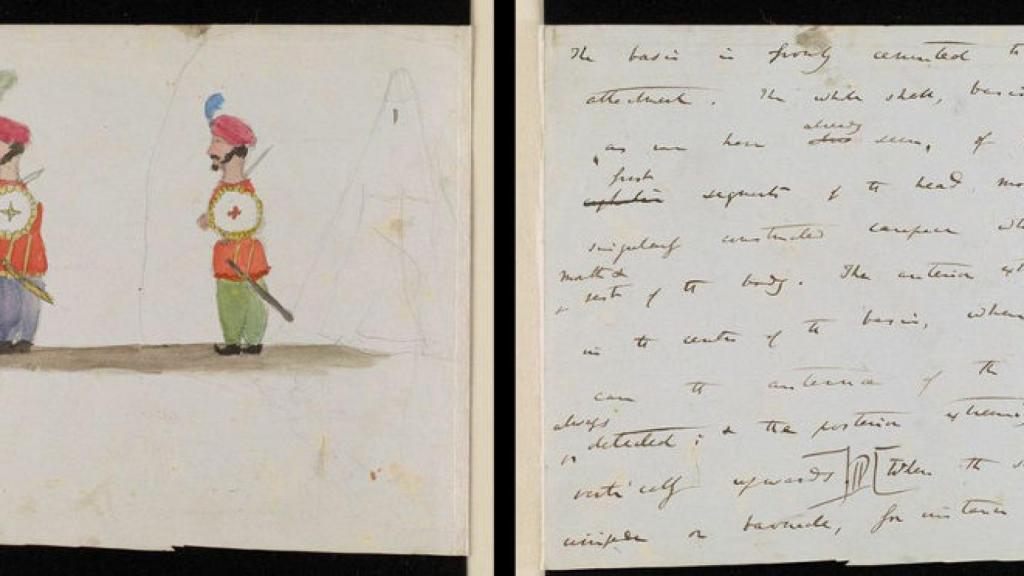 The basis is firmly cemented to
attachment. The whole shell, basis
as we have already seen, of
fresh
segments of the head
singularly constructed carapace
mouth &
rest of the body. The anterior
in the centre of the basis, where
can the antennæ of the
always
detected; & the posterior
vertically upwards When the
cirripede or barnacle, for instance